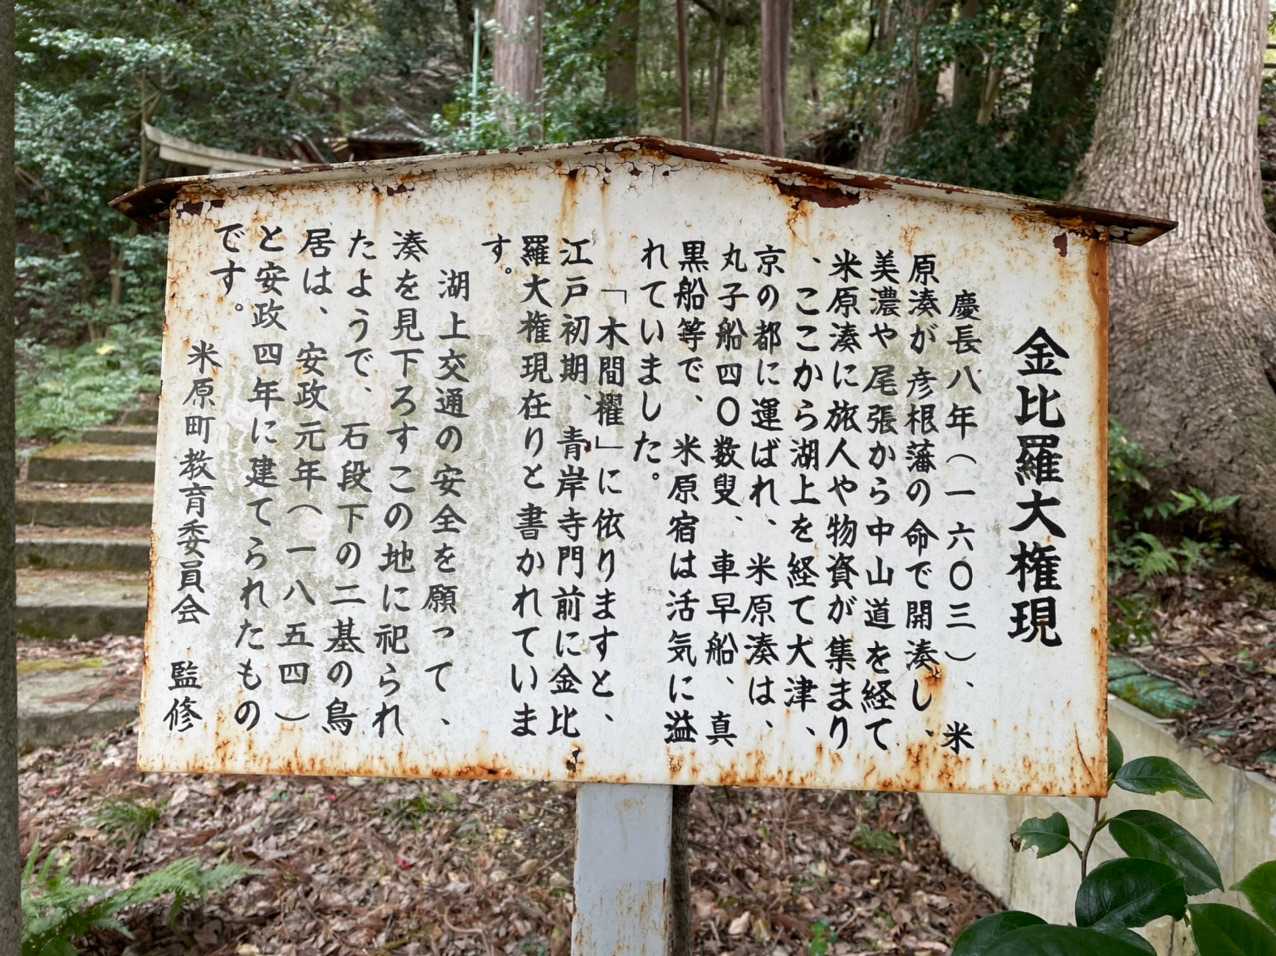 金比羅大権現
慶長八年(一六〇三)、米
原湊が彦根藩の命で開湊し、
美濃や尾張から中山道を経て
米原湊に旅人や物資が集まり
、ここから湖上を経て大津、
京の都に運ばれ、米原湊は、
丸子船四〇数叟、車早船、真
黒船等で、米原宿は活気に溢
れていました。
「木間櫂」に依りますと、
江戸初期、青岸寺門前に金比
羅大権現在りと書かれていま
す。
湖上交通の安全を願って、
湊を見下ろすこの地に祀られ
たようで、石段下の二基の鳥
居は、安政元年(一八五四)
と安政四年に建てられたもの
です。
米原町教育委員会 監修